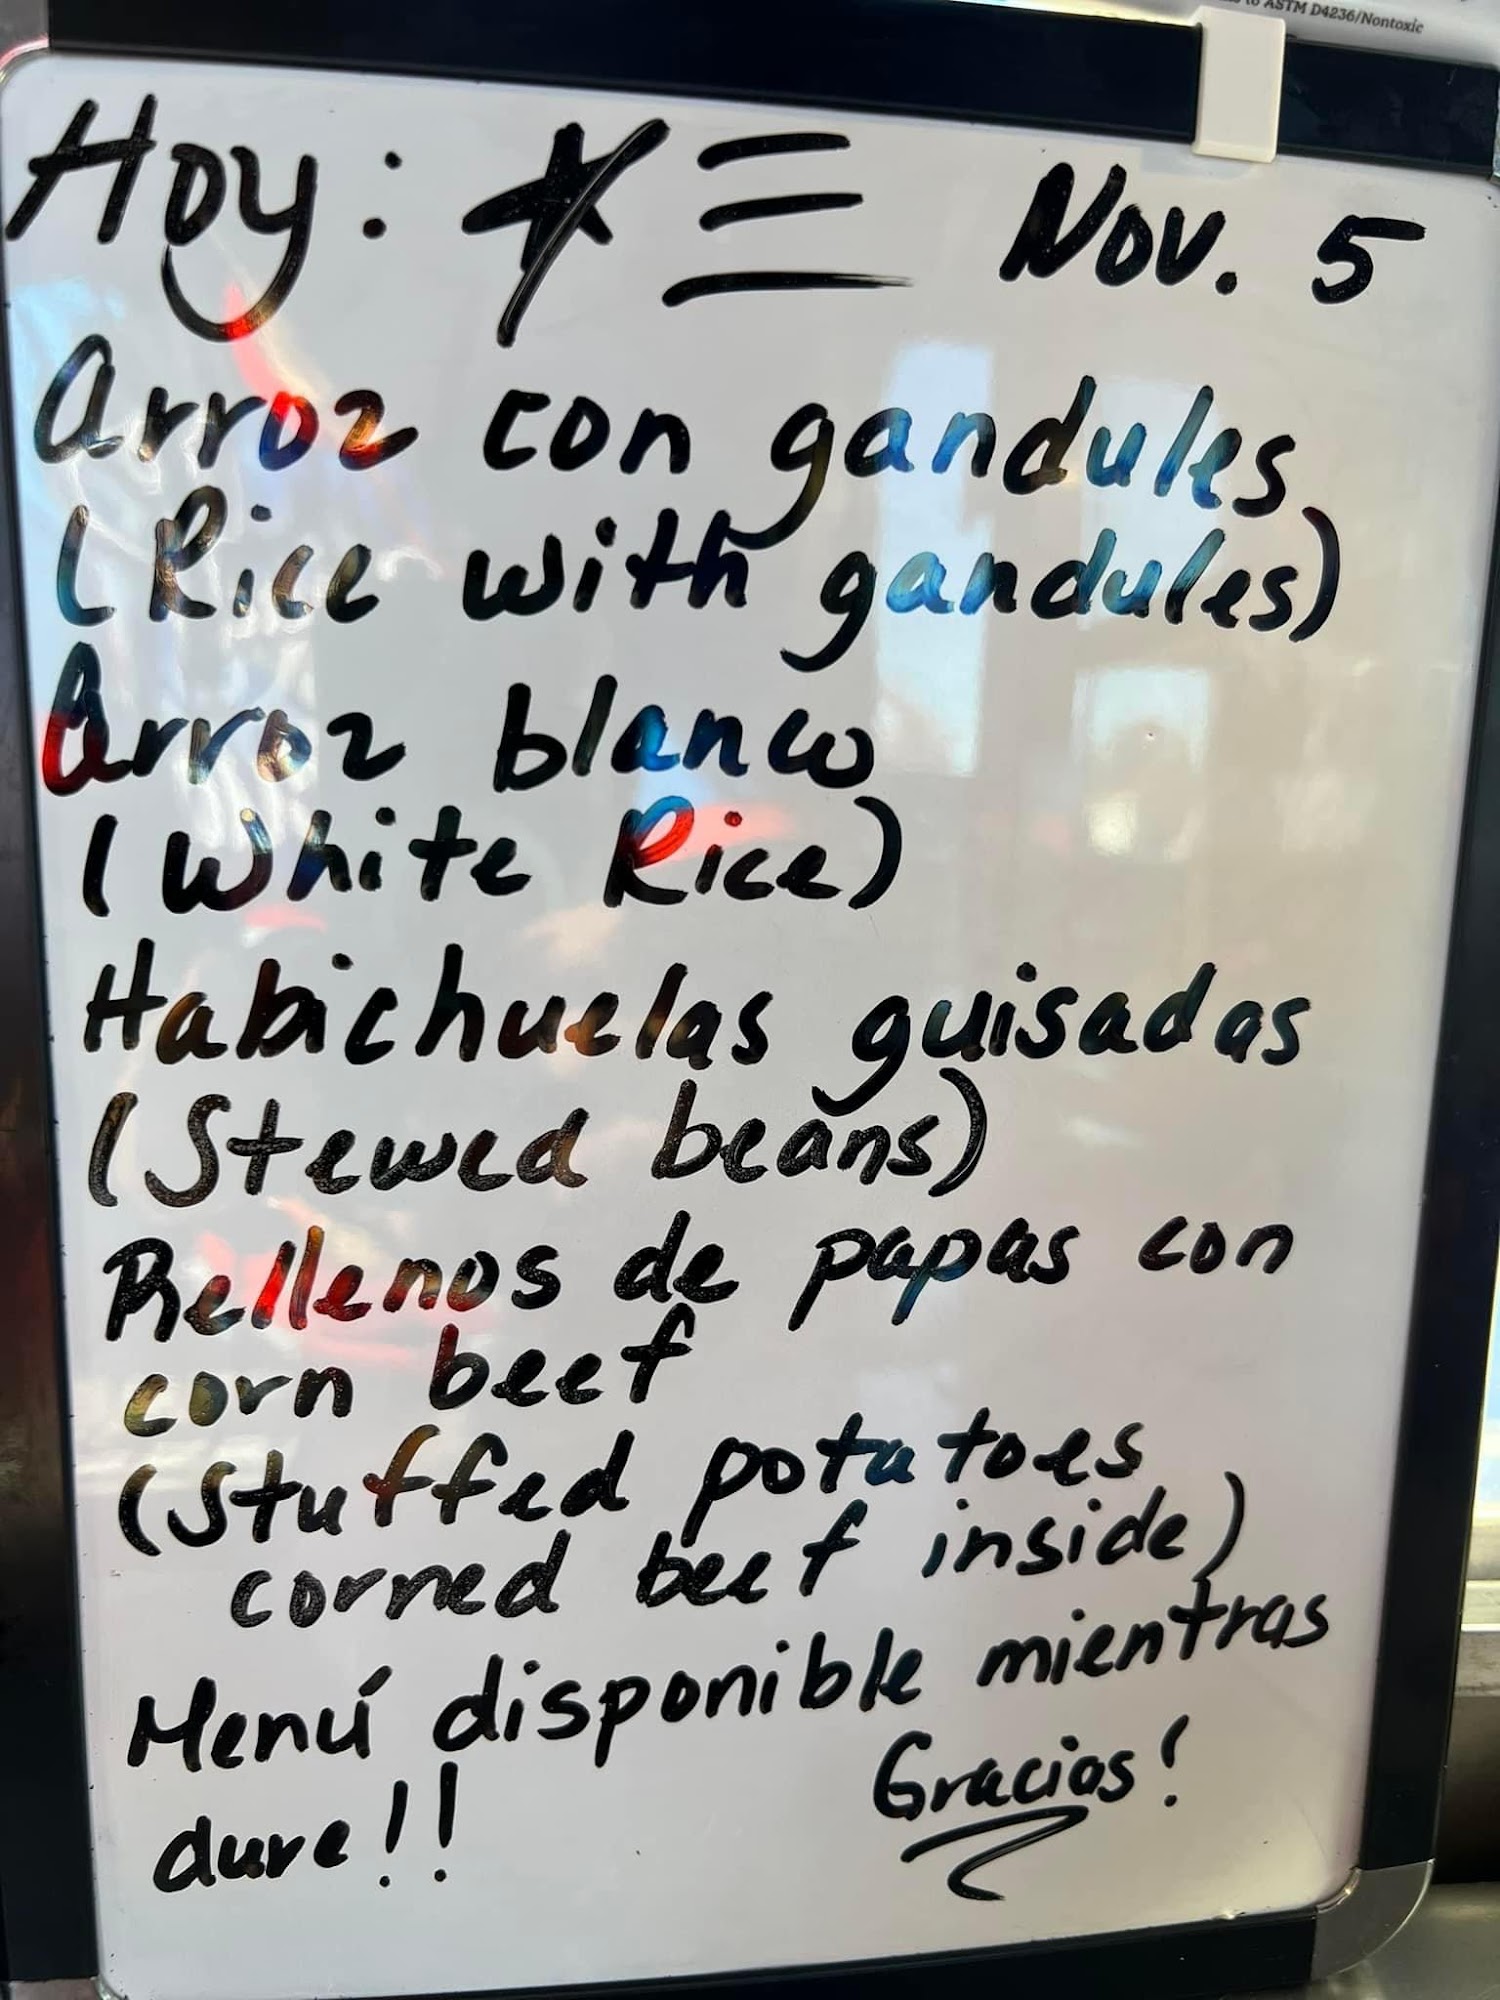 to ASTM D4236/Nontoxic
Hoy: Nov. 5
Arroz con gandules
(Rice with gandules)
Arroz blanco
(White Rice)
Habichuelas guisadas
(Stewed beans)
Rellenos de papas con
corn beef
(Stuffed potatoes
corned beef inside)
Menú disponible mientras
dure!!
Gracias!